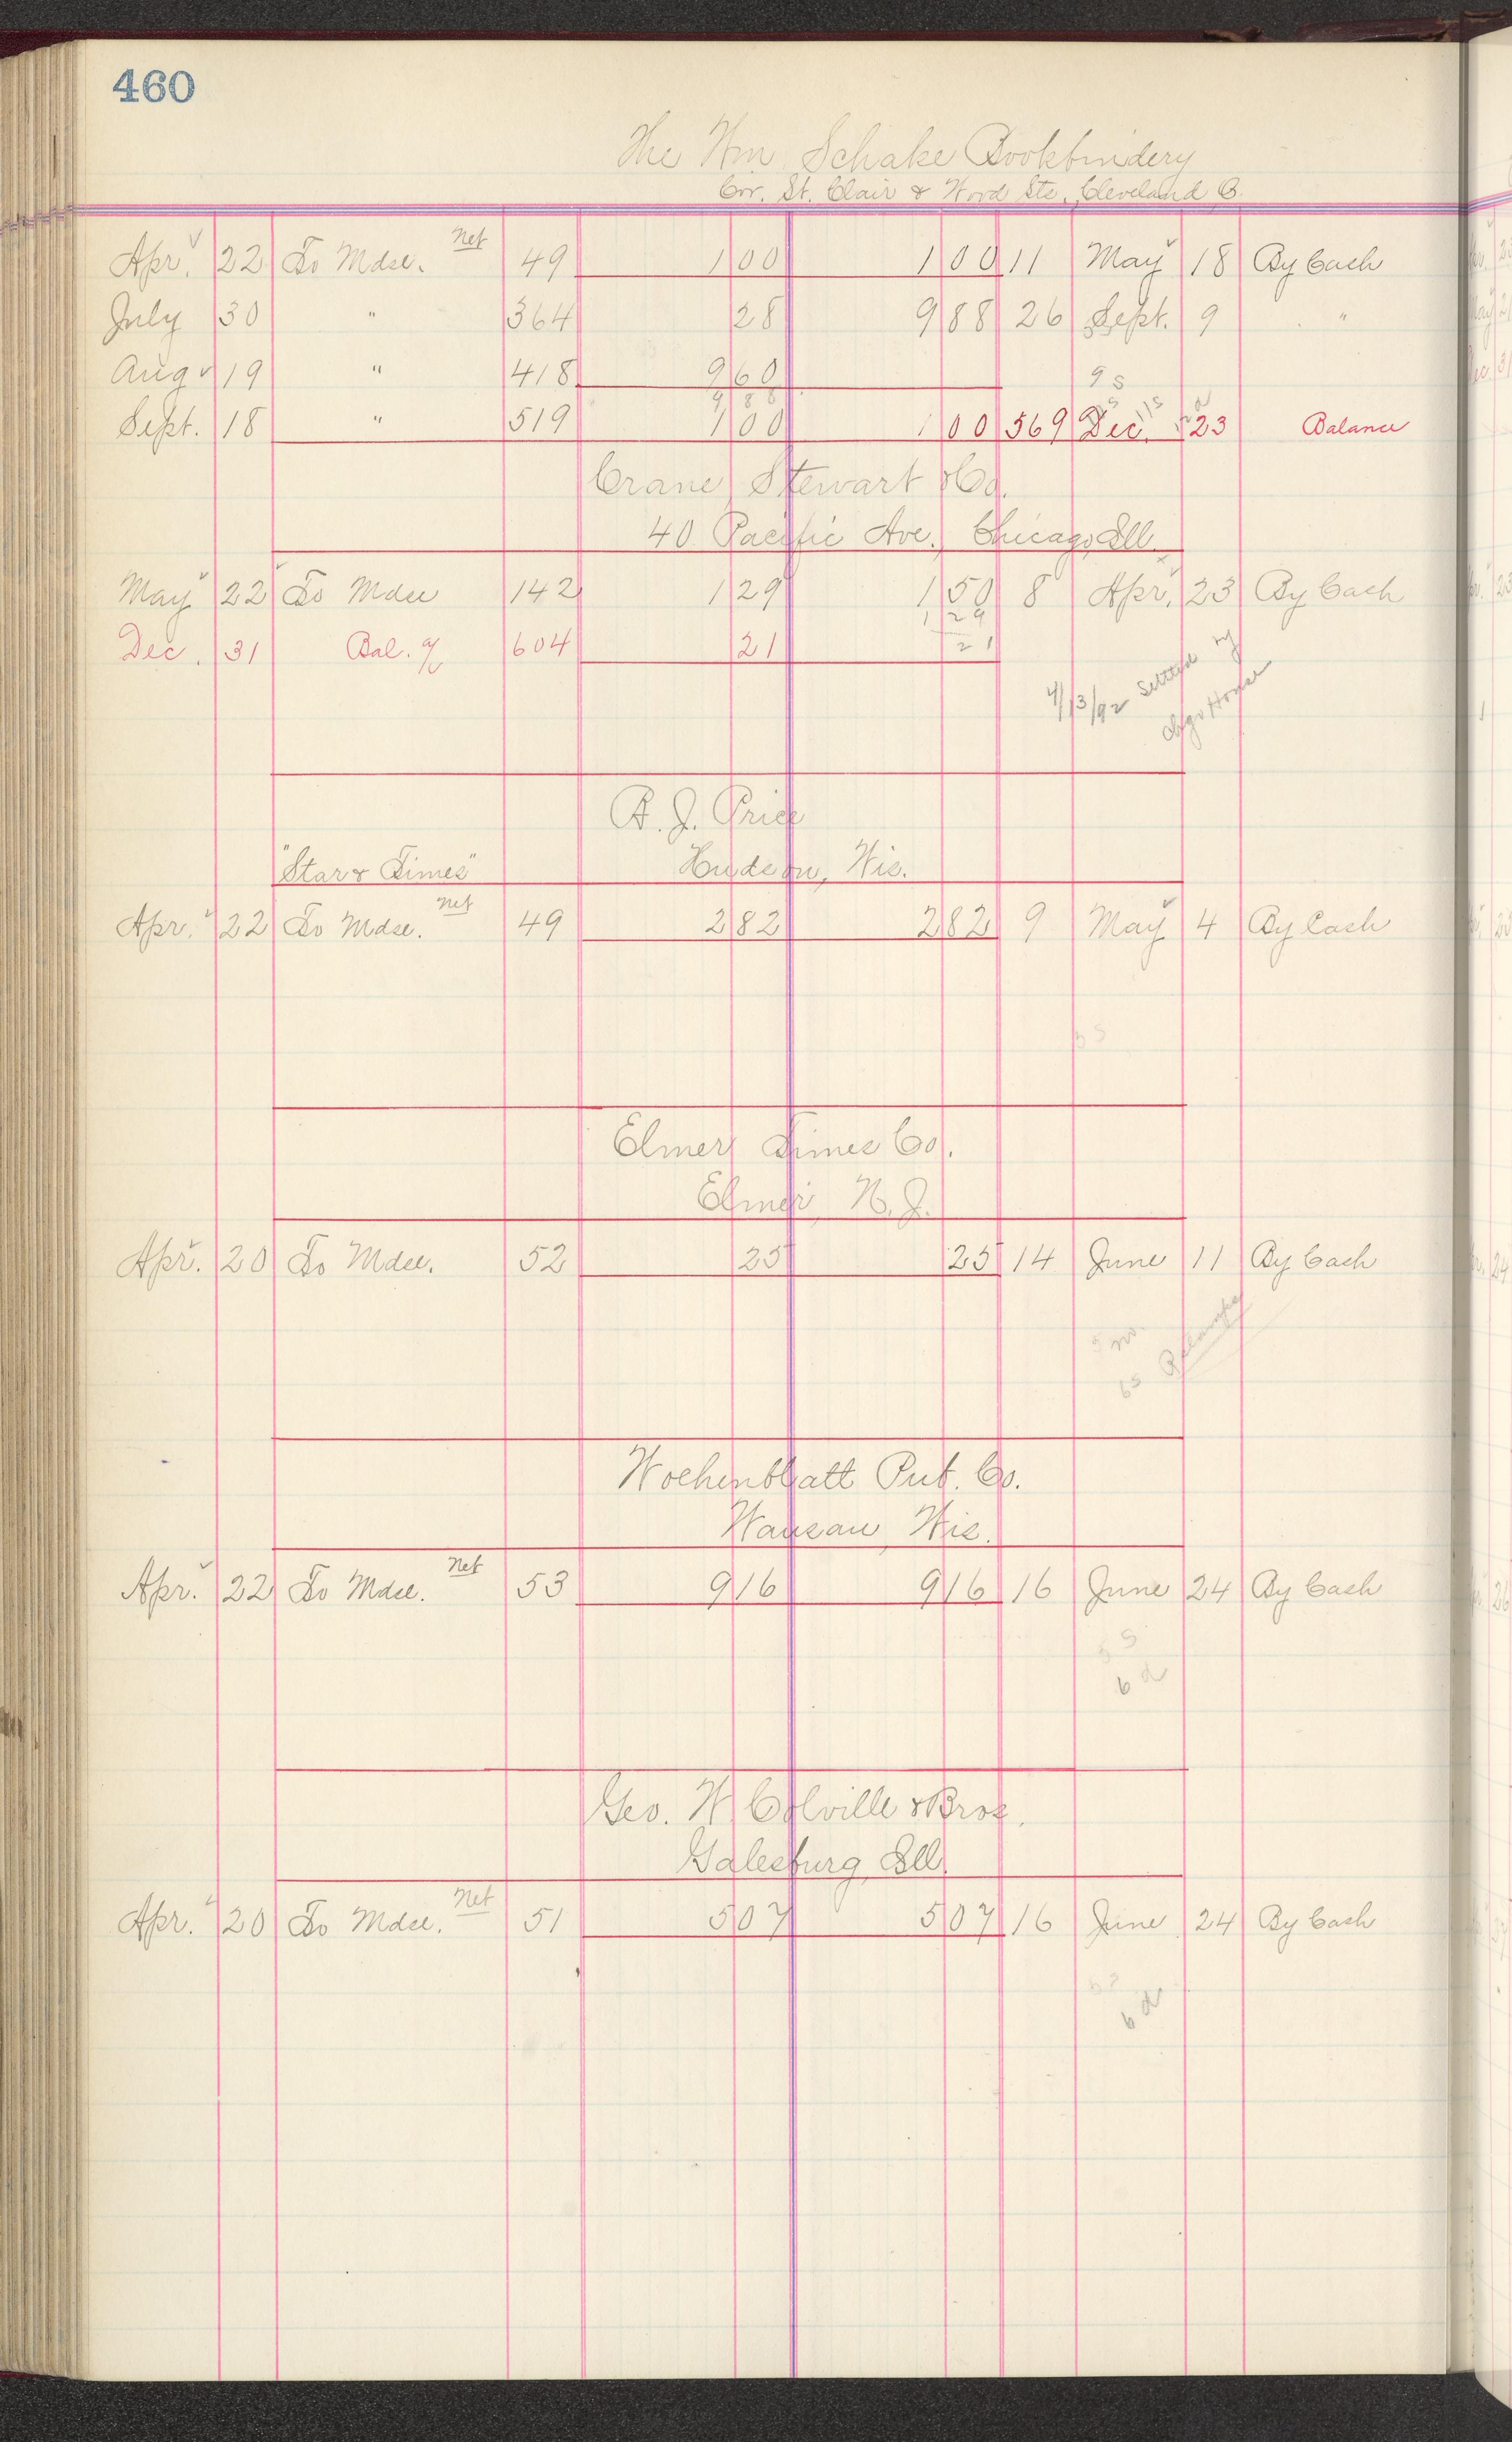 460
The Wm. Schake Bookbindery
Cor. St. Clair & Wood Sts., Cleveland O.
Apr. 22 To Mdse. Net 49 1 00 1 00 11 May 18 By Cash
July 30 " 364 28 9 88 26 Sept. 9 "
Aug 19 " 418 9 60
9 s
9 8 8
Sept. 18 " 519 1 00 1 00 569 Dec. 23 Balance
Crane, Stewart & Co.
40 Pacific Ave., Chicago, Ill.
May 22 To Mdse 142 1 29 1 50 8 Apr. 23 By Cash
1 29
Dec. 31 Bal. % 604 21 21
4/13/92 Settled by
Chgo House
B. J. Price
"Star & Times" Hudson, Wis.
Apr. 22 To Mdse. Net 49 2 82 2 82 9 May 4 By Cash
5 s
Elmer Times Co.
Elmer, N. J.
Apr. 20 To Mdse. 52 25 25 14 June 11 By Cash
6 s
Wochenblatt Pub. Co.
Wausau, Wis.
Apr. 22 To Mdse. Net 53 9 16 9 16 16 June 24 By Cash
5 s
6 d
Geo. W. Colville & Bros.
Galesburg, Ill.
Apr. 20 To Mdse. Net 51 5 07 5 07 16 June 24 By Cash
6 d